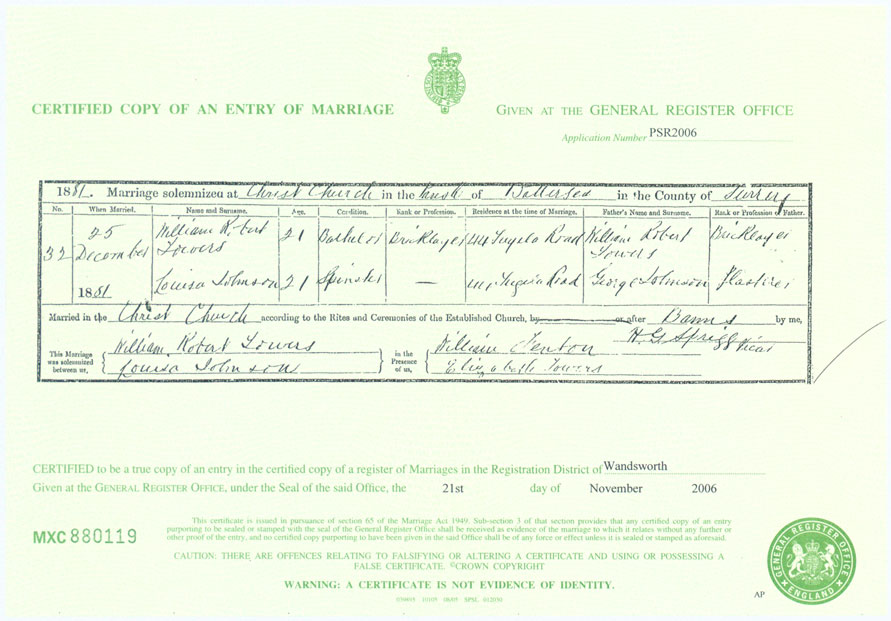 CERTIFIED COPY OF AN ENTRY OF MARRIAGE
GIVEN AT THE GENERAL REGISTER OFFICE
Application Number PSR2006
1881. Marriage solemnized at Christ Church in the Parish of Battersea in the County of Surrey
No. When Married. Name and Surname. Age. Condition. Rank or Profession. Residence at the time of Marriage. Father's Name and Surname. Rank or Profession of Father.
32 25 December 1881 William Robert Towers 21 Bachelor Bricklayer Road William Robert Towers Bricklayer
Louisa Johnson 21 Spinster — Road George Johnson Plasterer
Married in the Christ Church according to the Rites and Ceremonies of the Established Church, by or after Banns by me,
H. G. Sprigg Vicar
This Marriage was solemnized between us,
William Robert Towers
Louisa Johnson
in the Presence of us,
William Fenton
Elizabeth Towers
CERTIFIED to be a true copy of an entry in the certified copy of a register of Marriages in the Registration District of Wandsworth
Given at the GENERAL REGISTER OFFICE, under the Seal of the said Office, the 21st day of November 2006
MXC 880119
This certificate is issued in pursuance of section 65 of the Marriage Act 1949. Sub-section 3 of that section provides that any certified copy of an entry
purporting to be sealed or stamped with the seal of the General Register Office shall be received as evidence of the marriage to which it relates without any further or
other proof of the entry, and no certified copy purporting to have been given in the said Office shall be of any force or effect unless it is sealed or stamped as aforesaid.
CAUTION: THERE ARE OFFENCES RELATING TO FALSIFYING OR ALTERING A CERTIFICATE AND USING OR POSSESSING A
FALSE CERTIFICATE. ©CROWN COPYRIGHT
WARNING: A CERTIFICATE IS NOT EVIDENCE OF IDENTITY.
GENERAL REGISTER OFFICE
ENGLAND
AP